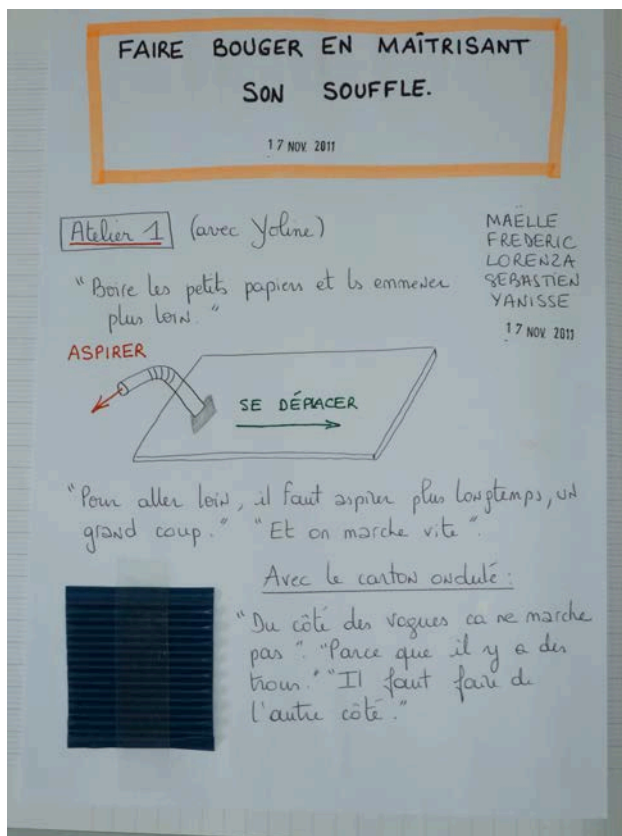 FAIRE BOUGER EN MAÎTRISANT
SON SOUFFLE.
17 NOV. 2011
Atelier 1 (avec Yoline)
MAËLLE
FREDERIC
LORENZA
SEBASTIEN
YANISSE
17 NOV. 2011
"Boire les petits papiers et ls emmener
plus loin."
ASPIRER
SE DÉPLACER
"Pour aller loin, il faut aspirer plus longtemps, un
grand coup." "Et on marche vite".
Avec le carton ondulé :
"Du côté des vagues ca ne marche
pas". "Parce que il y a des
trous." "Il faut faire de
l'autre côté."